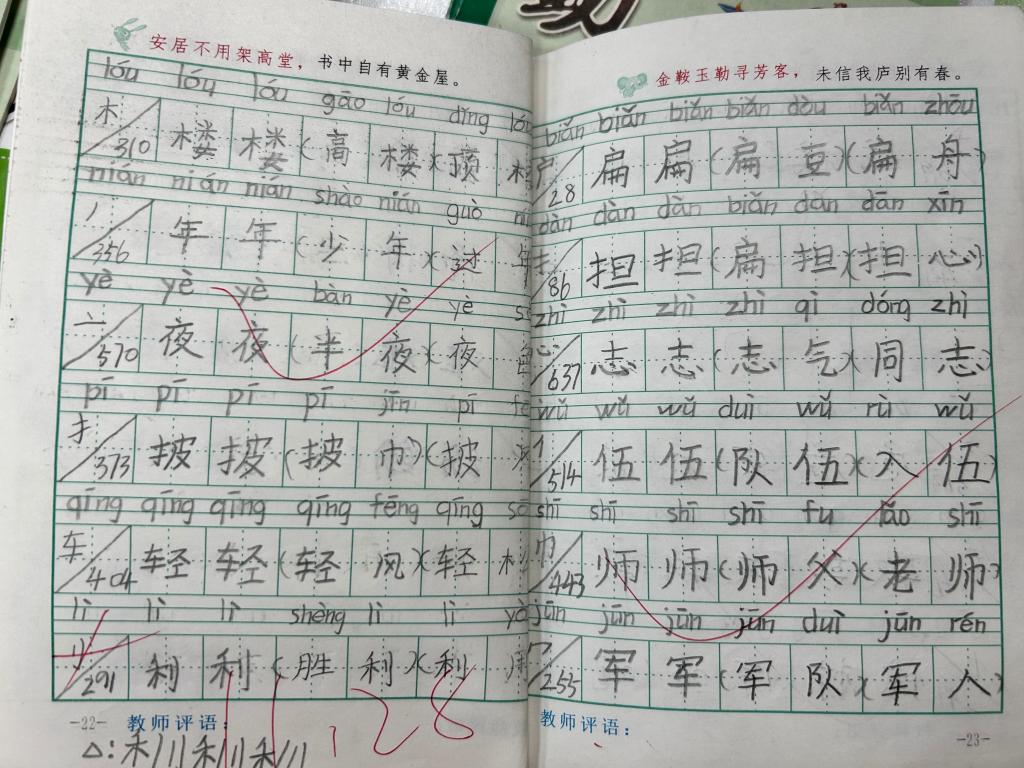 安居不用架高堂，书中自有黄金屋。
lóu lóu lóu gāo lóu dǐng lóu
木 310 楼 楼 (高 楼)(顶 楼
nián nián nián shào nián guò
丿 356 年 年 (少 年)(过 年
yè yè yè bàn yè yè
亠 370 夜 夜 (半 夜)(夜 色
pī pī pī pī jīn pī
扌 373 披 披 (披 巾)(披
qīng qīng qīng qīng fēng qīng
车 404 轻 轻 (轻 风)(轻
lì lì lì shèng lì lì
刂 291 利 利 (胜 利)(利
11.28
-22- 教师评语：
△: 利 利 利
金鞍玉勒寻芳客，未信我庐别有春。
biǎn biǎn biǎn biǎn dòu biǎn zhōu
户 28 扁 扁 (扁 豆)(扁 舟)
dàn dàn dàn biǎn dàn dān xīn
扌 86 担 担 (扁 担)(担 心)
zhì zhì zhì zhì qì dóng zhì
心 637 志 志 (志 气)(同 志)
wǔ wǔ wǔ duì wǔ rù wǔ
亻 514 伍 伍 (队 伍)(入 伍)
shī shī shī shī fu lǎo shī
巾 443 师 师 (师 父)(老 师)
jūn jūn jūn jūn duì jūn rén
冖 255 军 军 (军 队)(军 人)
教师评语：
-23-